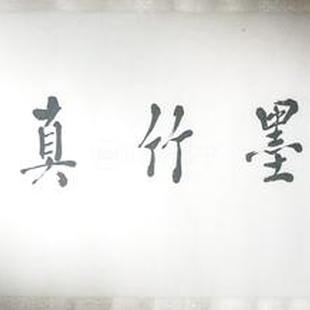 墨竹真